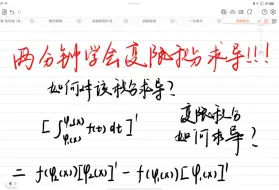 两分钟学会变限积分求导!!!
如何对该积分求导?
[∫_{φ₁(x)}^{φ₂(x)} f(t) dt]'
变限积分
如何求导?
= f(φ₂(x))[φ₂(x)]' - f(φ₁(x))[φ₁(x)]'